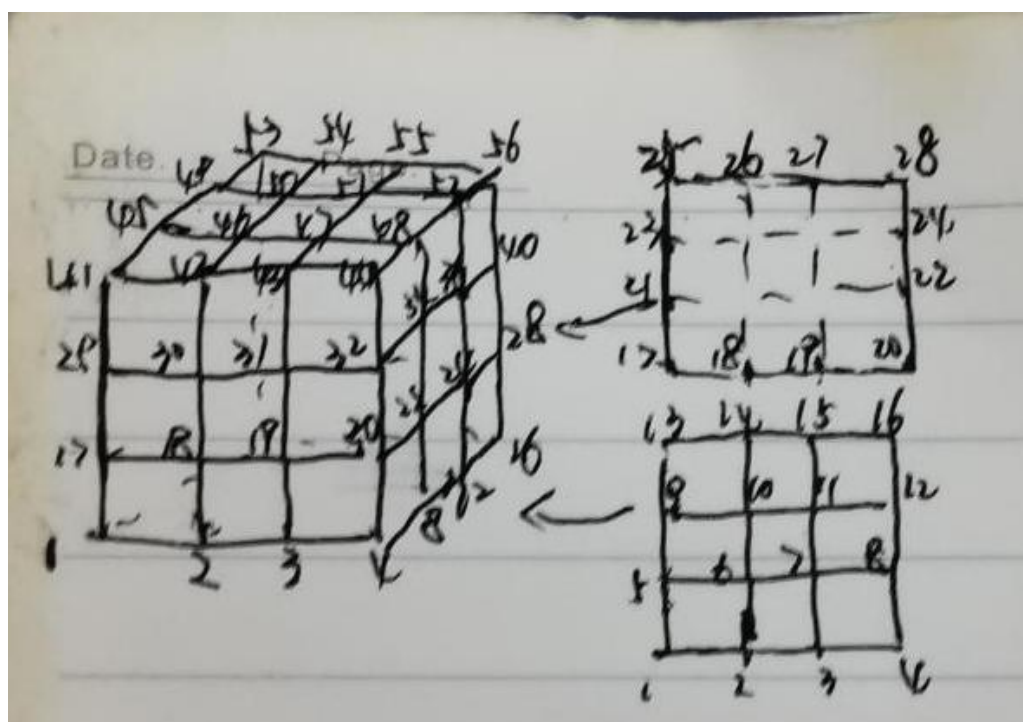 Date.
53 54 55 56
49 50 51 52
45 46 47 48
41 42 43 44
40
29 30 31 32
28
17 18 19 20
16
12
8
1 2 3 4
25 26 27 28
23 24
21 22
17 18 19 20
13 14 15 16
9 10 11 12
5 6 7 8
1 2 3 4